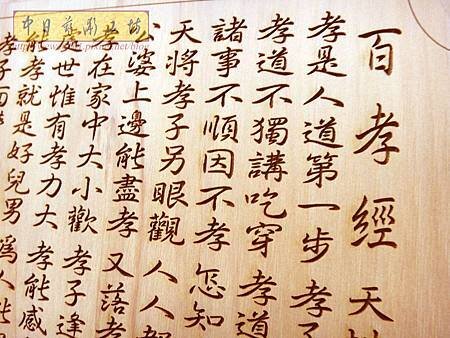 中日藝彫工坊
百孝經 天
孝是人道第一步 孝子
孝道不獨講吃穿 孝道
諸事不順因不孝 怎知
天將孝子另眼觀 人人
婆上邊能盡孝 又落孝
孝在家中大小歡 孝子逢
處世惟有孝力大 孝能感
能孝就是好兒男 爲人能
孝子面